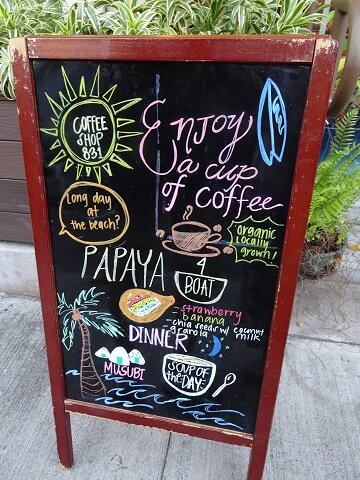 COFFEE
SHOP
831
Enjoy
a cup
of coffee
Long day
at the
beach?
organic
locally
grown!
PAPAYA
BOAT
strawberry
banana
chia seeds w/ coconut
granola milk
DINNER
MUSUBI
SOUP OF
the DAY